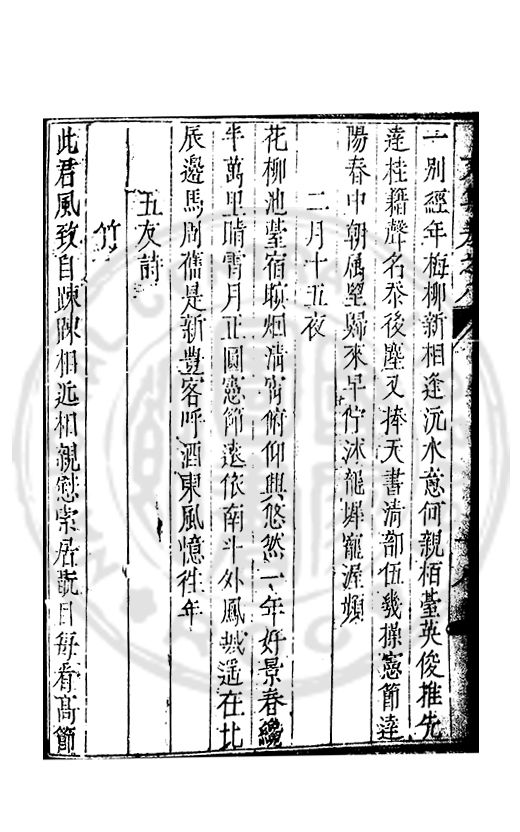 一別經年梅柳新相逢沅水意何親栢臺英俊推先
達桂籍聲名忝後塵又捧天書清部伍幾操憲節達
陽春中朝属望歸來早佇沐龍墀寵渥頻
二月十五夜
花柳池臺宿暝烟清宵俯仰興悠然一年好景春纔
半萬里晴霄月正圓憲節遠依南斗外鳳城遥在北
辰邊馬周舊是新豊客呼酒東風憶往年
五友詩
竹
此君風致自踈陳相近相親慰索居翫日每看高節